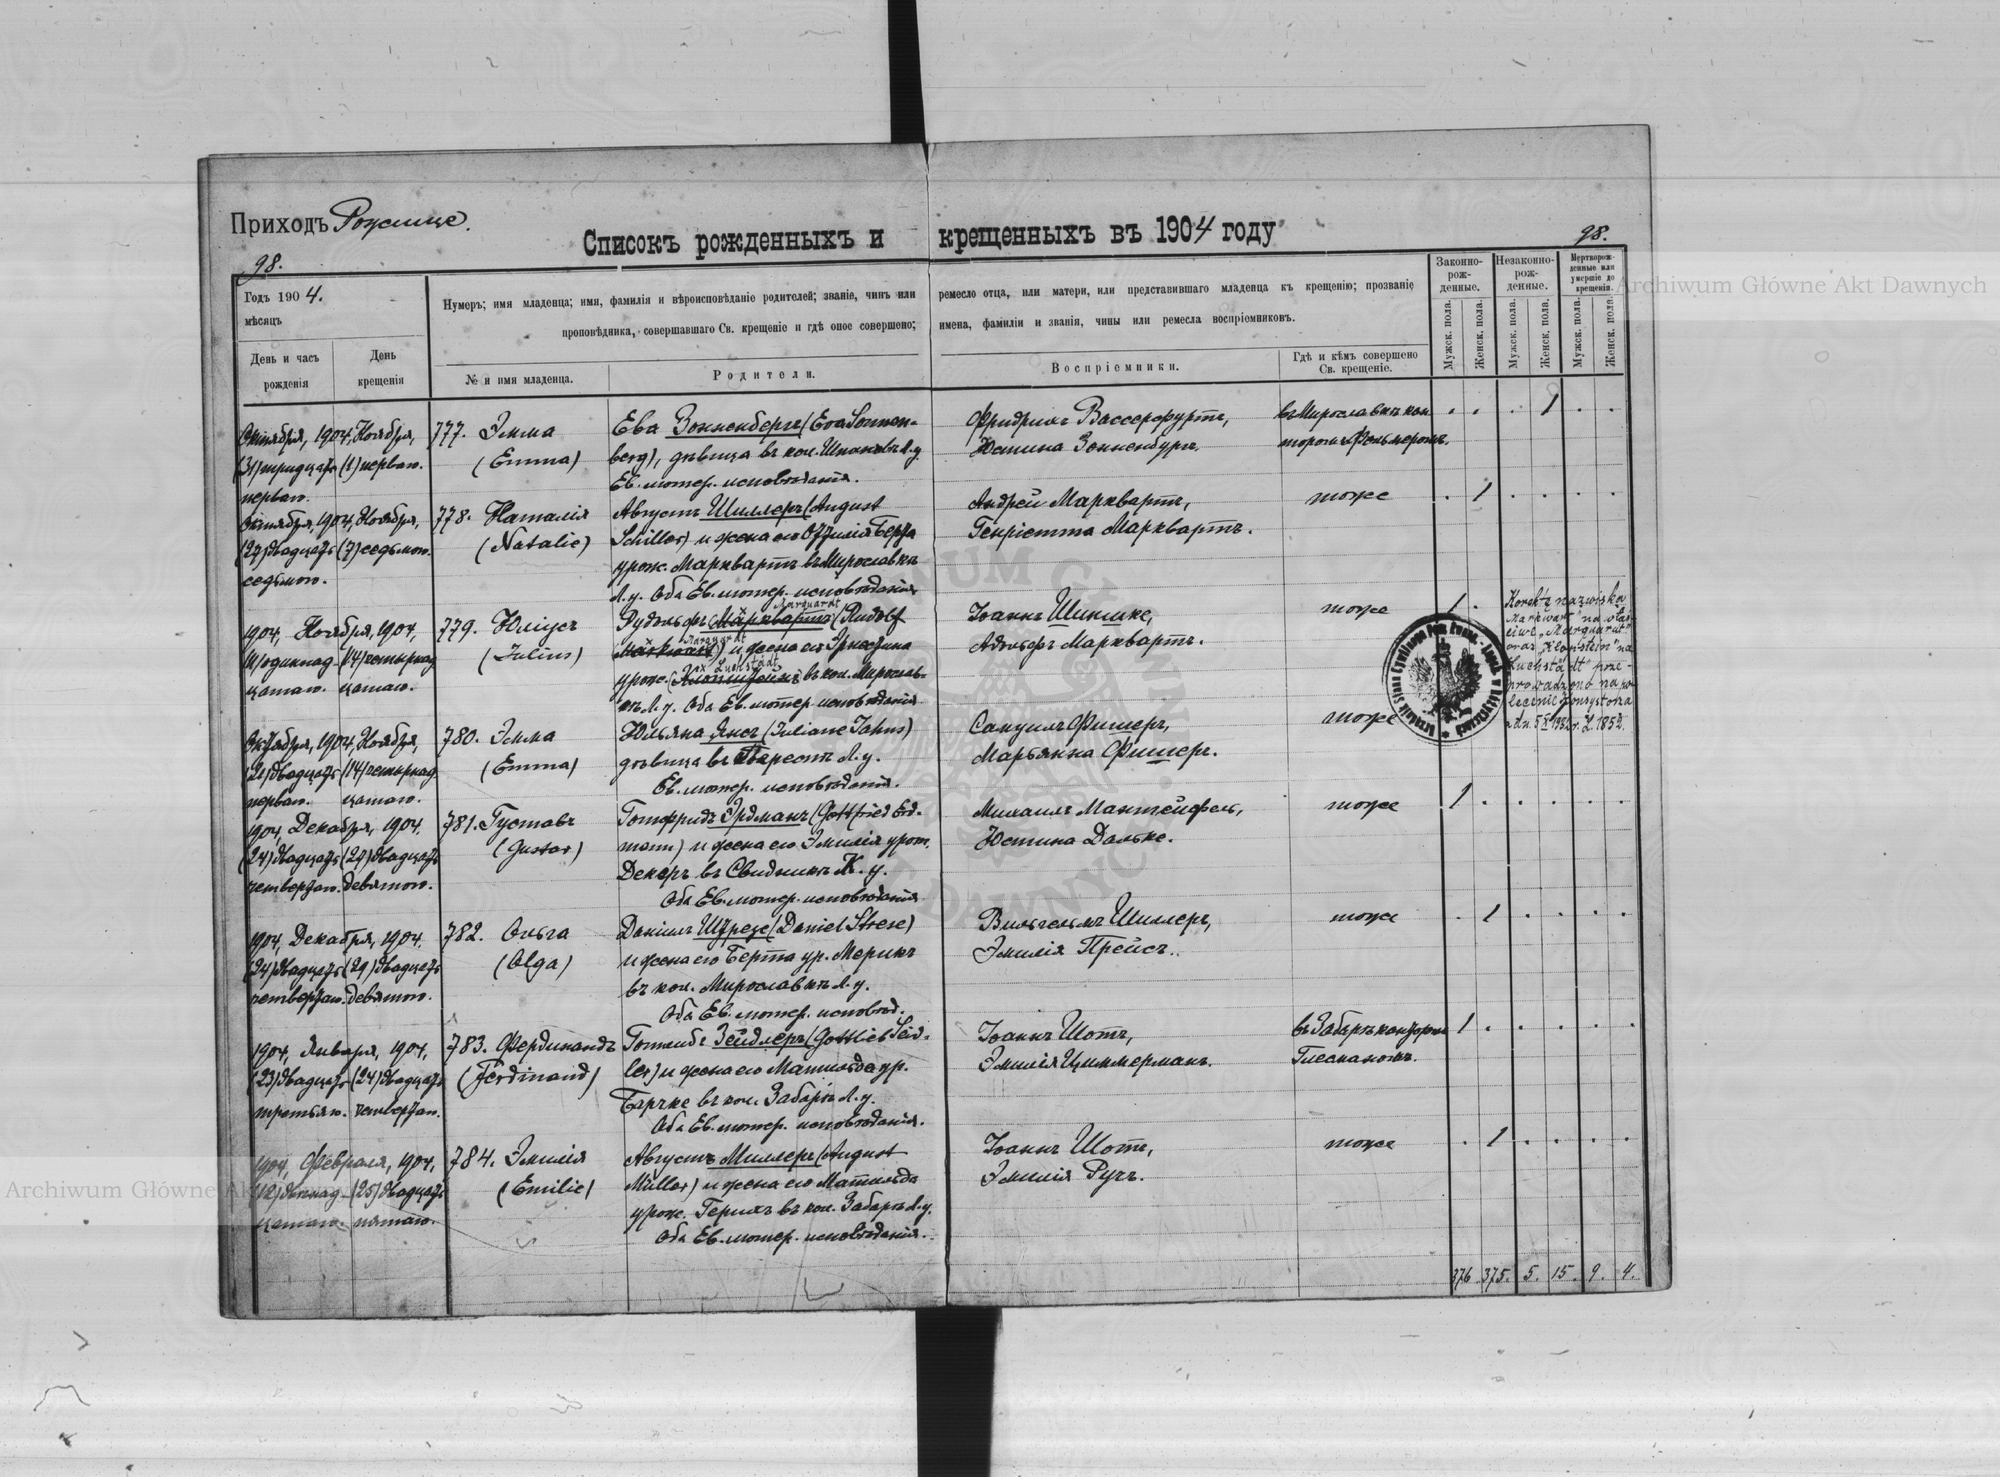 Приходъ Рожище.
Списокъ рожденныхъ и крещенныхъ въ 1904 году
98.
98.
Годъ 1904.
мѣсяцъ
День и часъ рожденія
День крещенія
Нумеръ; имя младенца; имя, фамилія и вѣроисповѣданіе родителей; званіе, чинъ или ремесло отца, или матери, или представившаго младенца къ крещенію; прозваніе
проповѣдника, совершавшаго Св. крещеніе и гдѣ оное совершено; имена, фамиліи и званія, чины или ремесла воспріемниковъ.
№ и имя младенца.
Родители.
Воспріемники.
Гдѣ и кѣмъ совершено Св. крещеніе.
Законно-рож-денные.
Незаконно-рож-денные.
Мертворож-денные или умершіе до крещенія.
Мужск. пола.
Женск. пола.
Мужск. пола.
Женск. пола.
Мужск. пола.
Женск. пола.
Октября, 1904, Ноября,
(31) тридцать (1) перваго.
перваго.
777. Эмма
(Emma)
Ева Зонненбергъ (Eva Sonnen-
berg), дѣвица въ кол. Л.у.
Ев. лютер. исповѣданія.
Фридрихъ Вассерфуртъ,
Юстина Зонненбургъ.
въ Мирославкѣ кан
торомъ
1
Октября, 1904, Ноября,
(27) двадцать (7) седьмого.
седьмого.
778. Наталія
(Natalie)
Августъ Шиллеръ (August
Schiller) и жена его Оттилія Берта
урож. Марквартъ въ Мирославкѣ
Л.у. Оба Ев. лютер. исповѣданія
Андрей Марквартъ,
Генріетта Марквартъ.
тоже
1
1904, Ноября, 1904,
(11) одиннад- (14) четырнад
цатаго. цатаго.
779. Юліусъ
(Julius)
Marquardt
Рудольфъ (Марквартъ (Rudolf
Marquardt
Markwart) и жена его Эрнестина
Luchstädt
урож. въ кол. Мирослав-
кѣ Л.у. Оба Ев. лютер. исповѣданія
Іоаннъ Шишке,
Адольфъ Марквартъ.
тоже
1
Korektę nazwiska
"Markwart" na właś-
ciwe "Marquardt"
oraz "Klonstein" na
"Luchstädt" prze-
prowadzono na po-
lecenie Konsystorza
z dn. L. 1852.
Октября, 1904, Ноября,
(21) двадцать (14) четырнад
перваго. цатаго.
780. Эмма
(Emma)
Юльяна Янсъ (Juliane Jahns)
дѣвица въ Л.у.
Ев. лютер. исповѣданія.
Самуилъ Фишеръ,
Марьянна Фишеръ.
тоже
1904, Декабря, 1904.
(24) двадцать (29) двадцать
четвертаго. девятого.
781. Густавъ
(Gustav)
Готфридъ Эрдманъ (Gottfried Erd-
mann) и жена его Эмилія урож.
Декеръ въ Свидникѣ К.у.
Оба Ев. лютер. исповѣданія
Михаилъ Мантейфель,
Юстина Дальке.
тоже
1
1904, Декабря, 1904.
(24) двадцать (29) двадцать
четвертаго. девятого.
782. Ольга
(Olga)
Даніилъ Штрезе (Daniel Strese)
и жена его Берта ур. Мерикъ
въ кол. Мирославкѣ Л.у.
Оба Ев. лютер. исповѣд.
Вильгельмъ Шиллеръ,
Эмилія Прейсъ.
тоже
1
1904, Января, 1904,
(23) двадцать (24) двадцать
третьяго. четвертаго.
783. Фердинандъ
(Ferdinand)
Готлибъ Зейдлеръ (Gottlieb Seid-
ler) и жена его Матильда ур.
въ кол. Забара Л.у.
Оба Ев. лютер. исповѣданія.
Іоаннъ Шотъ,
Эмилія Циммерманъ.
въ Забарѣ канторомъ
1
1904, Февраля, 1904,
(12) двѣнад- (25) двадцать
цатаго. пятаго.
784. Эмилія
(Emilie)
Августъ Миллеръ (August
Müller) и жена его Матильда
урож. въ кол. Забара Л.у.
Оба Ев. лютер. исповѣданія.
Іоаннъ Шотъ,
Эмилія Ручъ.
тоже
1
376. 375. 5. 15. 9. 4.
Archiwum Główne Akt Dawnych
Archiwum Główne Akt Dawnych